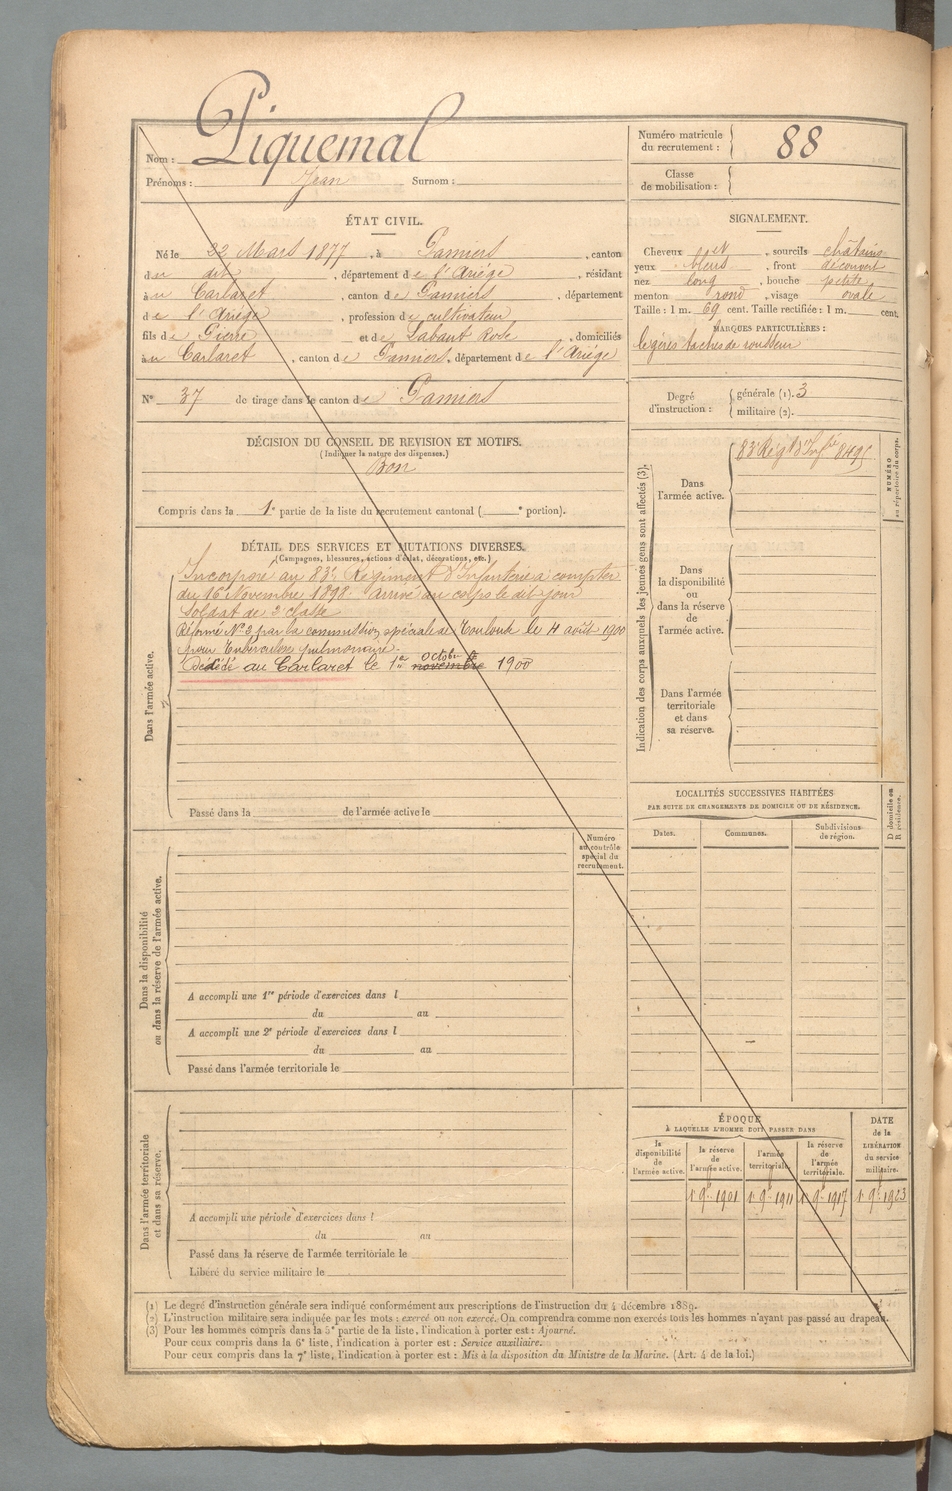 Nom : Piquemal
Prénoms : Jean Surnom :
Numéro matricule du recrutement : 88
Classe de mobilisation :
ÉTAT CIVIL.
Né le 22 Mars 1877, à Pamiers, canton
du dit, département de l'Ariège, résidant
au Carlaret, canton de Pamiers, département
de l'Ariège, profession de cultivateur
fils de Pierre et de Labaut Rose, domiciliés
au Carlaret, canton de Pamiers, département de l'Ariège
N° 37 de tirage dans le canton de Pamiers
SIGNALEMENT.
Cheveux et, sourcils châtains
yeux bleus, front découvert
nez long, bouche petite
menton rond, visage ovale
Taille : 1 m. 69 cent. Taille rectifiée : 1 m. cent.
MARQUES PARTICULIÈRES :
légères taches de rousseur
Degré d'instruction : générale (1). 3
militaire (2).
DÉCISION DU CONSEIL DE REVISION ET MOTIFS.
(Indiquer la nature des dispenses.)
Bon
Compris dans la 1e partie de la liste du recrutement cantonal ( e portion).
DÉTAIL DES SERVICES ET MUTATIONS DIVERSES.
(Campagnes, blessures, actions d'éclat, décorations, etc.)
Dans l'armée active.
Incorporé au 83e Régiment d'Infanterie à compter
du 16 Novembre 1898. Arrivé au corps le dit jour
Soldat de 2e classe
Réformé N° 2 par la commission spéciale de Toulouse le 4 août 1900
pour Tuberculose pulmonaire.
Décédé au Carlaret le 1er octobre novembre 1900
Passé dans la de l'armée active le
Indication des corps auxquels les jeunes gens sont affectés (3).
Dans l'armée active.
83e Régt d'Infie 8495
NUMÉRO au répertoire du corps.
Dans la disponibilité ou dans la réserve de l'armée active.
Dans l'armée territoriale et dans sa réserve.
LOCALITÉS SUCCESSIVES HABITÉES
PAR SUITE DE CHANGEMENTS DE DOMICILE OU DE RÉSIDENCE.
Dates. Communes. Subdivisions de région.
D domicile ou R résidence.
Numéro au contrôle spécial du recrutement.
Dans la disponibilité ou dans la réserve de l'armée active.
A accompli une 1re période d'exercices dans l
du au
A accompli une 2e période d'exercices dans l
du au
Passé dans l'armée territoriale le
Dans l'armée territoriale et dans sa réserve.
A accompli une période d'exercices dans l
du au
Passé dans la réserve de l'armée territoriale le
Libéré du service militaire le
ÉPOQUE
À LAQUELLE L'HOMME DOIT PASSER DANS
la disponibilité de l'armée active.
la réserve de l'armée active.
l'armée territoriale.
la réserve de l'armée territoriale.
DATE de la LIBÉRATION du service militaire.
1 9bre 1901 1 9bre 1911 1 9bre 1917 1 9bre 1923
(1) Le degré d'instruction générale sera indiqué conformément aux prescriptions de l'instruction du 4 décembre 1889.
(2) L'instruction militaire sera indiquée par les mots : exercé ou non exercé. On comprendra comme non exercés tous les hommes n'ayant pas passé au drapeau.
(3) Pour les hommes compris dans la 5e partie de la liste, l'indication à porter est : Ajourné.
Pour ceux compris dans la 6e liste, l'indication à porter est : Service auxiliaire.
Pour ceux compris dans la 7e liste, l'indication à porter est : Mis à la disposition du Ministre de la Marine. (Art. 4 de la loi.)